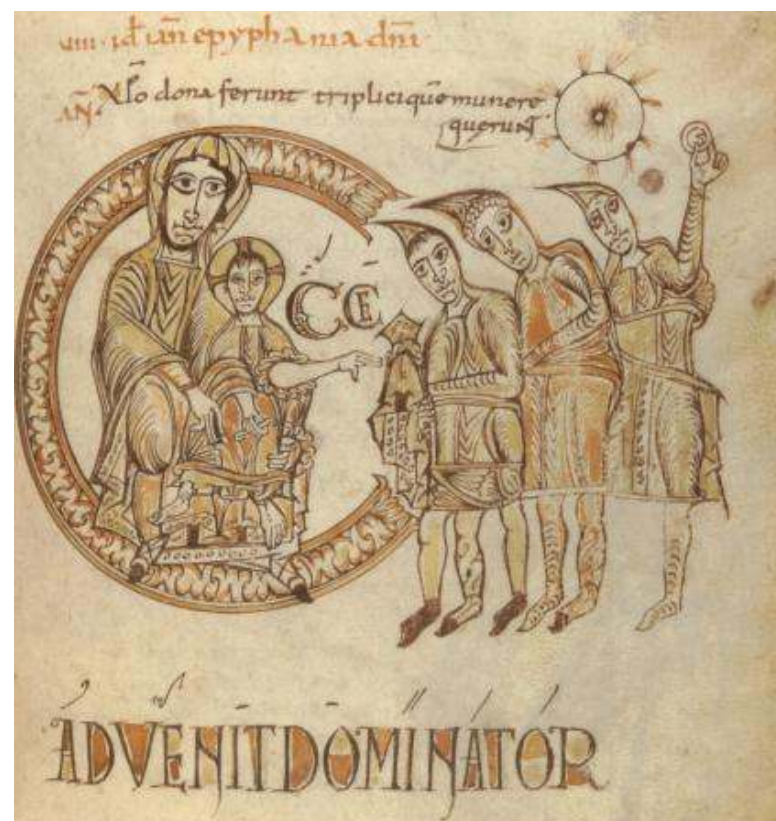 uiii · id iañ epyphania dñi
AÑ Xp̃o dona ferunt triplicique munere
querunt
ECCE
ADVENIT DOMINATOR